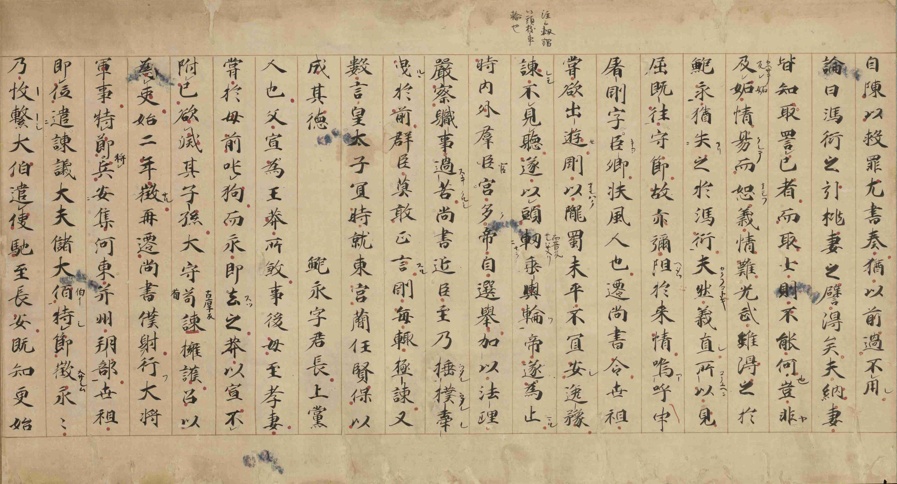 自陳以赦罪尤書奏猶以前過不用
論曰馮衍之引挑妻之譬得矣夫納妻
皆知取詈己者而取士則不能何豈非
及妬情易而恕義情難光武雖得之於
鮑永猶失之於馮衍夫然義直所以見
屈既往守節故亦彌阻於來情嗚呼申
屠剛字臣卿扶風人也遷尚書令世祖
嘗欲出遊剛以隴蜀未平不宜安逸豫
諫不見聽遂以頭軔乗輿輪帝遂為止
時内外羣臣宮多帝自選舉加以法理
嚴察職事過苦尚書近臣至乃捶撲牽
曳於前群臣莫敢正言剛每輙極諫又
數言皇太子宜時就東宮蕑任賢保以
成其德 鮑永字君長上黨
人也父宣為王莽所敓事後母至孝妻
嘗於母前叱狗而永即去之莽以宣不
附己欲滅其子孫大守苟諫擁護召以
更始二年徵再遷尚書僕射行大將
軍事特節兵安集河東并州朔部世祖
即位遣諫議大夫儲大伯特節徵永〻
乃收繫大伯遣使馳至長安既知更始